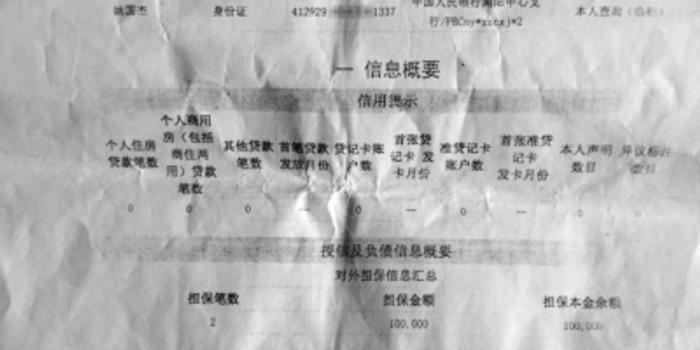 中国人民银行南阳中心支
姚国杰 身份证 412929 1337 行/PBCny*zxcxj*2 本人查询（临柜）
一 信息概要
信用提示
个人住房贷款笔数 个人商用房（包括商住两用）贷款笔数 其他贷款笔数 首笔贷款发放月份 贷记卡账户数 首张贷记卡 发卡月份 准贷记卡账户数 首张准贷记卡 发卡月份 本人声明数目 异议标注数目
0 0 0 — 0 — 0 — 0
授信及负债信息概要
对外担保信息汇总
担保笔数 担保金额 担保本金余额
2 100,000 100,000